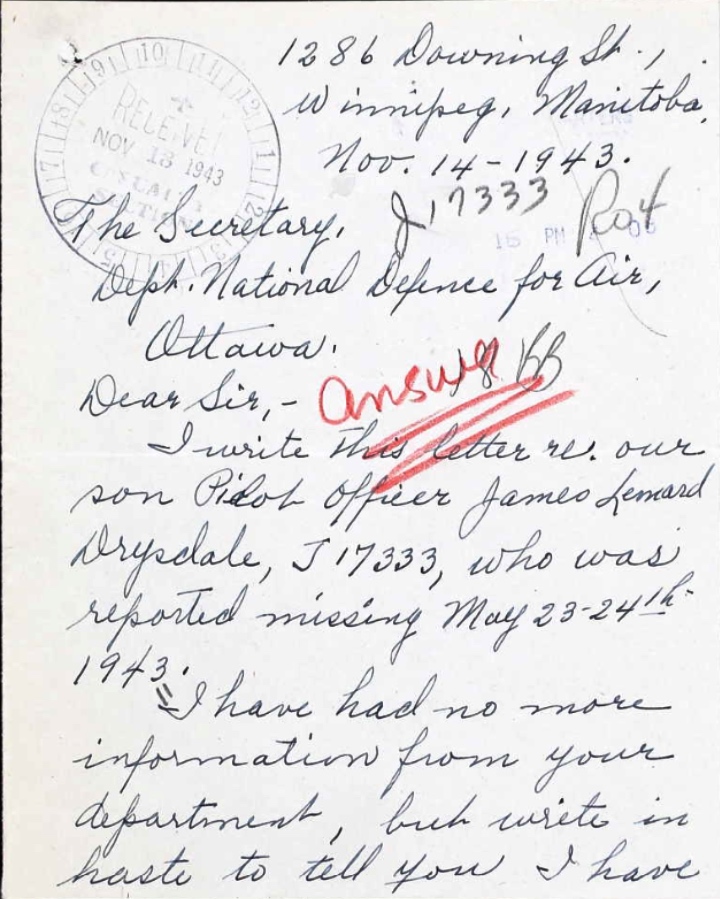 1286 Downing St.,
Winnipeg, Manitoba,
Nov. 14-1943.
RECEIVED
NOV 18 1943
SECTION
J17333
The Secretary,
Dept. National Defence for Air,
Ottawa.
Answer
Dear Sir,-
I write this letter re. our
son Pilot Officer James Lenard
Drysdale, J17333, who was
reported missing May 23-24th-
1943.
I have had no more
information from your
department, but write in
haste to tell you I have